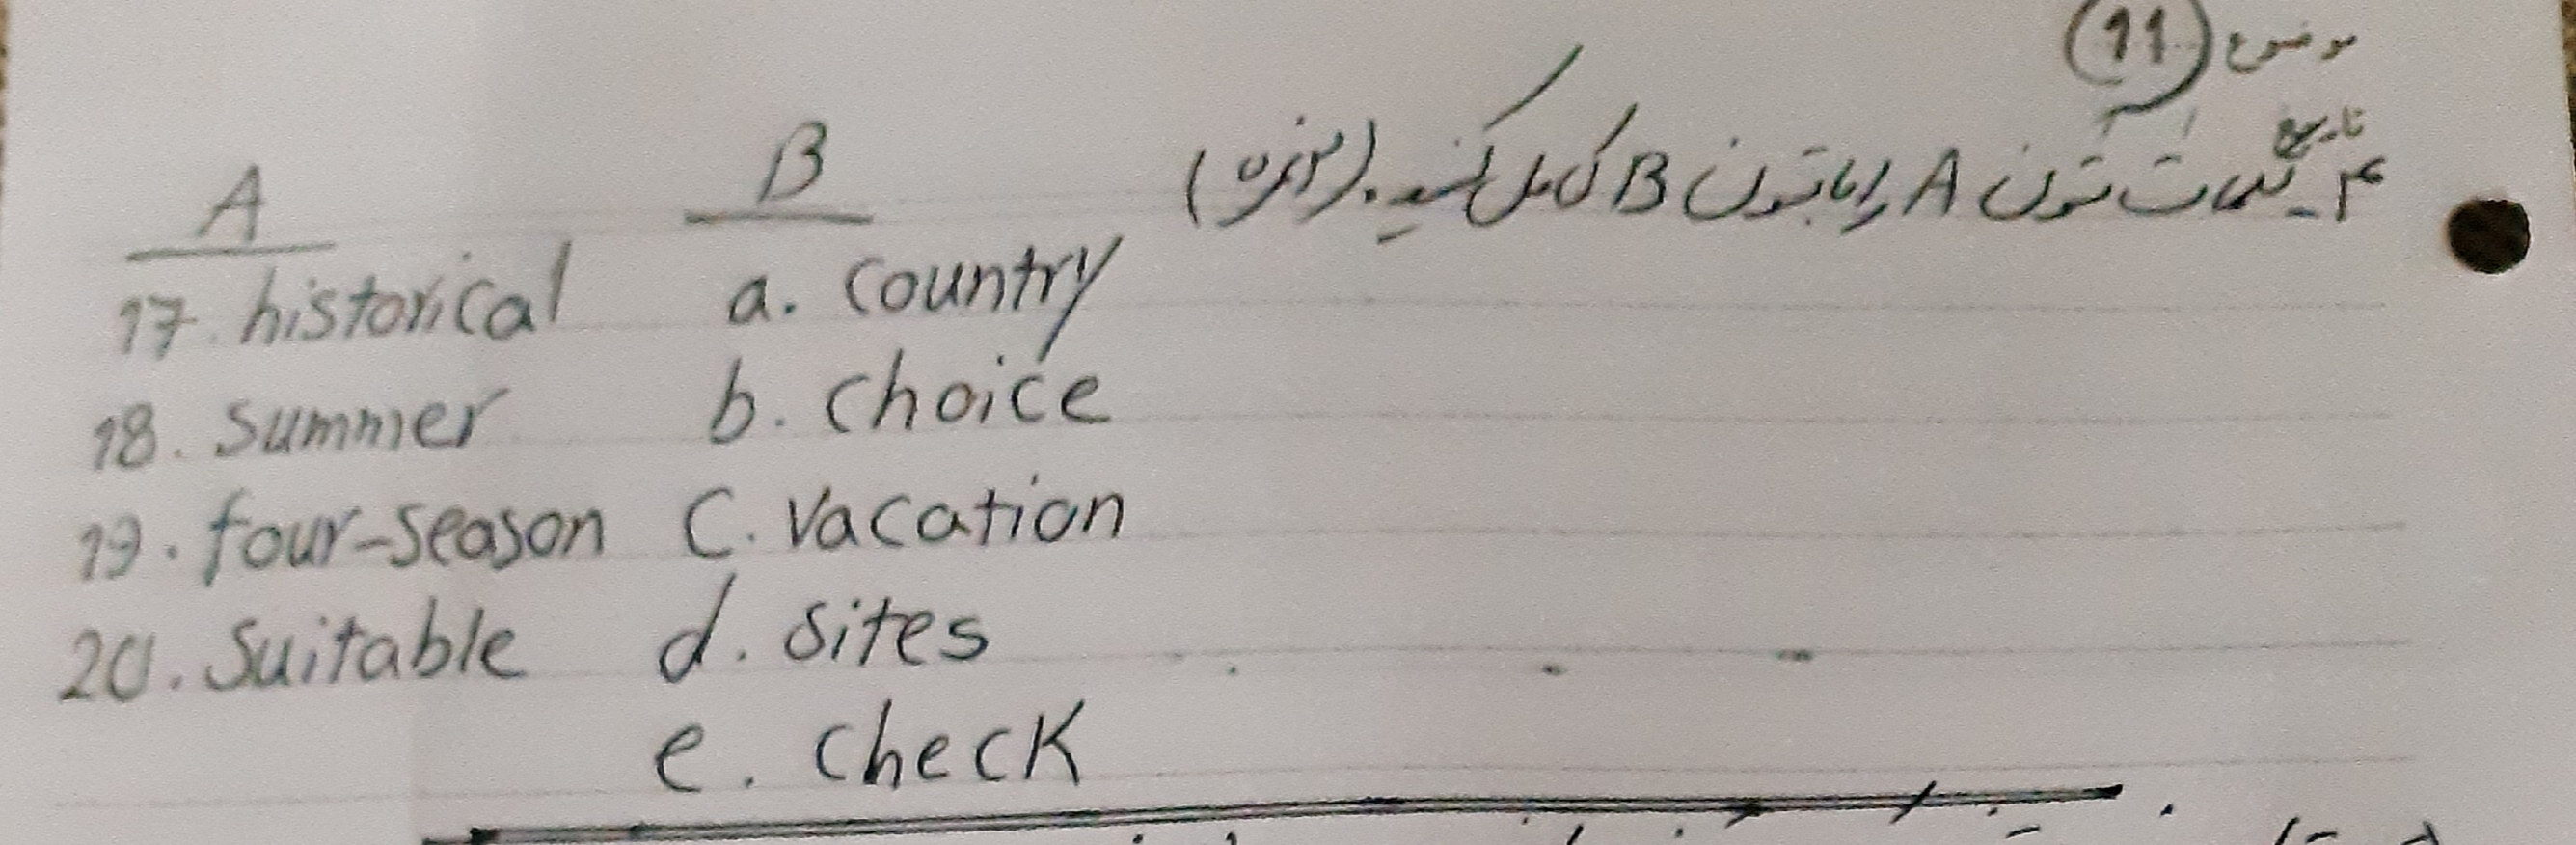 موضوع (11)
تاریخ
۴_ کلمات ستون A را با ستون B کامل کنید. (۲نمره)
A B
17. historical a. country
18. summer b. choice
19. four-season C. vacation
20. Suitable d. sites
e. check